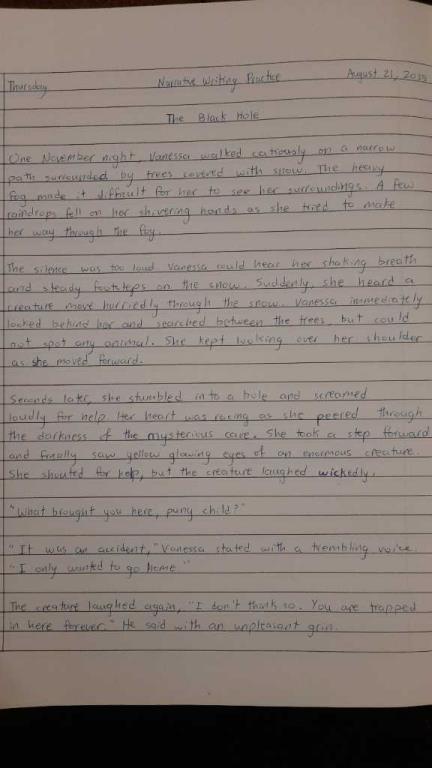 Thursday Narrative Writing Practice August 21, 20
The Black Hole
One November night, Vanessa walked catiously on a narrow
path surrounded by trees covered with snow. The heavy
fog made it difficult for her to see her surroundings. A few
raindrops fell on her shivering hands as she tried to make
her way through the fog.
The silence was too loud Vanessa could hear her shaking breath
and steady footsteps on the snow. Suddenly, she heard a
creature move hurriedly through the snow. Vanessa immediately
looked behind her and searched between the trees, but could
not spot any animal. She kept looking over her shoulder
as she moved forward.
Seconds later, she stumbled in to a hole and screamed
loudly for help. Her heart was racing as she peered through
the darkness of the mysterious cave. She took a step forward
and finally saw yellow glowing eyes of an enormous creature.
She shouted for help, but the creature laughed wickedly.
"What brought you here, puny child?"
"It was an accident," Vanessa stated with a trembling voice.
"I only wanted to go home."
The creature laughed again, "I don't think so. You are trapped
in here forever." He said with an unpleasant grin.